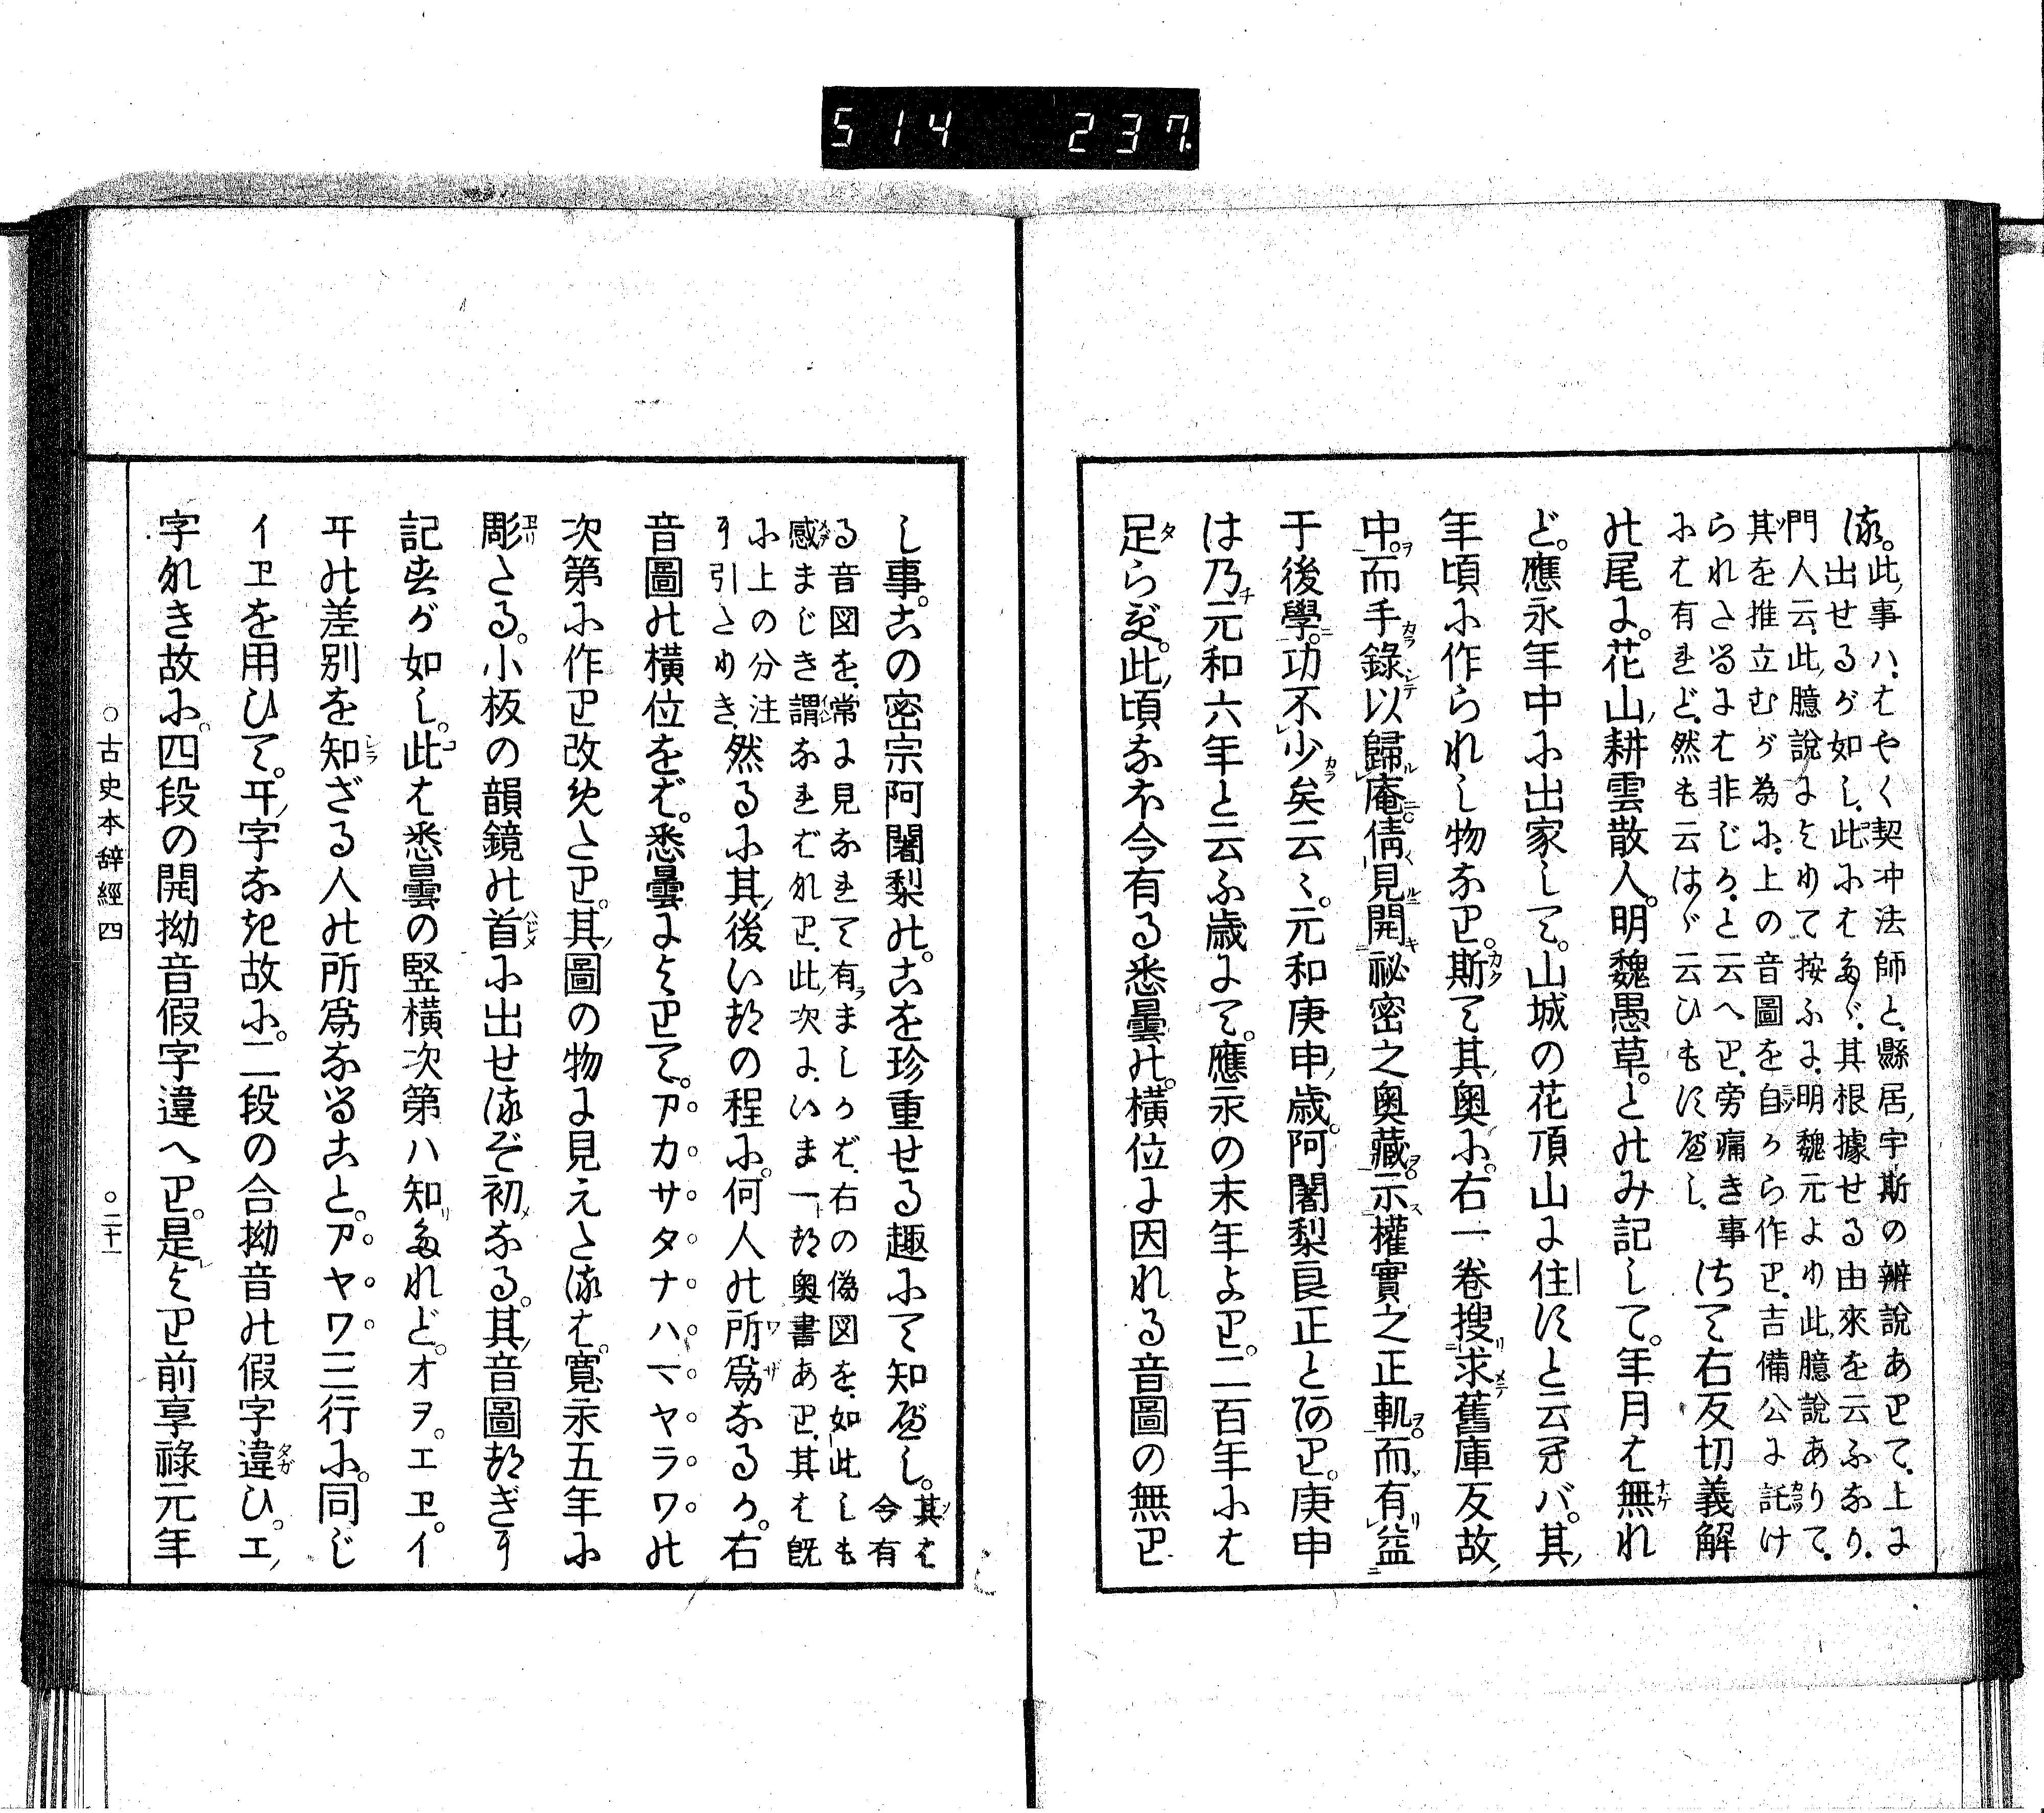 514 237.
る。此ノ事ハ、はやく契冲法師と、縣居ノ宇斯の辨說ありて、上に
出せるが如し、此にはたゞ、其根據せる由來を云ふなり、
門人云、此ノ臆說によりて按ふに、明魏元より此ノ臆說ありて、
其を推立むが為に、上の音圖を自から作り、吉備公に託け
られたるには非じか、と云へり、旁痛き事
には有れど、然も云はゞ云ひもすべし、
はて右反切義解
の尾に。花山ノ耕雲散人。明魏愚草。とのみ記して。年月は無れ
ど。應永年中に出家して。山城の花頂山に住すと云ヘバ。其ノ
年頃に作られし物なり。斯て其ノ奧に。右一卷搜求舊庫反故ノ
中。而手錄以歸庵倩見開祕密之奧藏示權實之正軌而有益
于後學。功不少矣云〻。元和庚申ノ歲。阿闍梨良正とあり。庚申
は乃元和六年と云ふ歲にて。應永の末年より。二百年には
足らず。此ノ頃なほ今有る悉曇の。橫位に因れる音圖の無り
し事。この密宗阿闍梨の。こを珍重せる趣にて知べし。
其は今有
る音図を、常に見なれて有ましかば、右の偽図を、如此しも
感まじき謂なればなり、此ノ次に、いま一ト部奧書あり、其は既
に上の分注
に引たりき、
然るに其ノ後いかの程に。何人の所爲なるか。右
音圖の橫位をば。悉曇によりて。アカサタナハマヤラワの
次第に作り改めたり。其ノ圖の物に見えたるは。寬永五年に
彫たる。小板の韻鏡の首に出せるぞ初なる。其ノ音圖かぎり
記すが如し。此は悉曇の竪橫次第ハ知たれど。オヲ。エヱ。イ
ヰの差別を知ざる人の所爲なること。アヤワ三行に。同じ
イヱを用ひて。ヰノ字なき故に。二段の合拗音の假字違ひ。エノ
字れき故に。四段の開拗音假字違へり。是より前享祿元年
○古史本辭經四 ○二十一